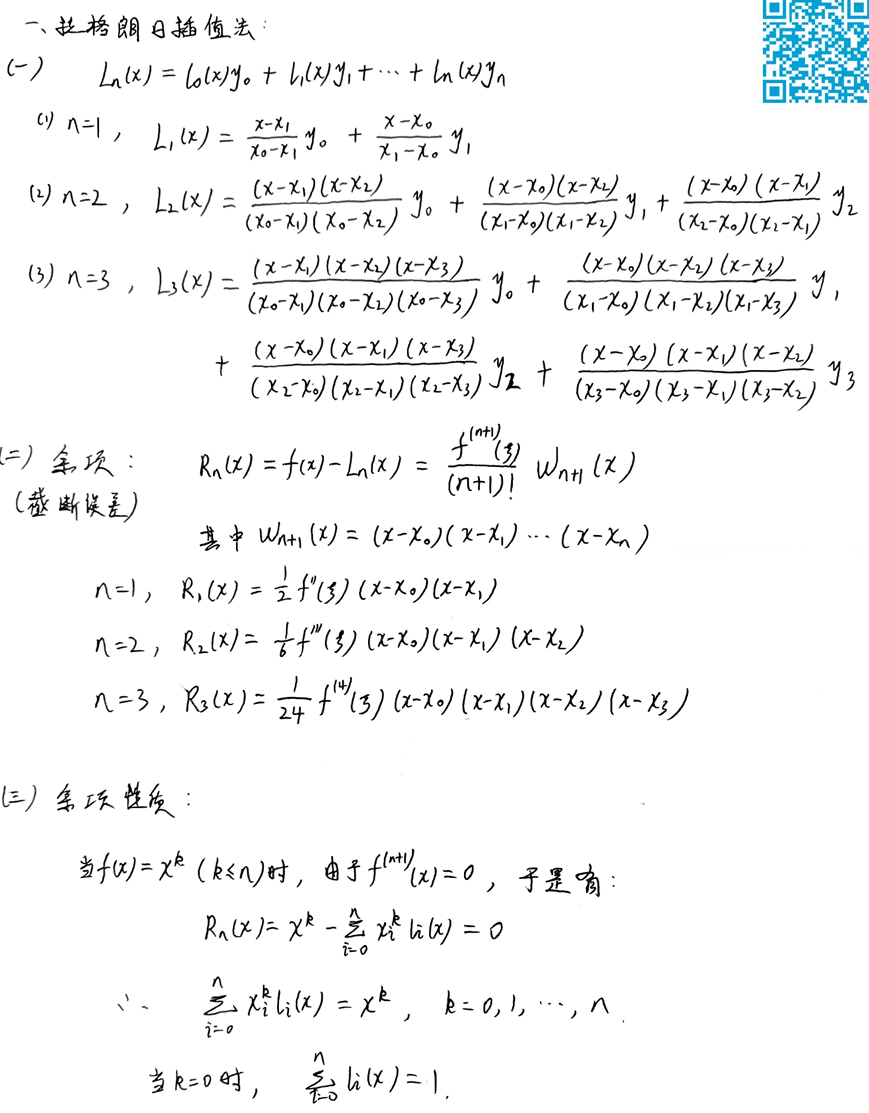 一、拉格朗日插值法:
(一) Ln(x) = l0(x)y0 + l1(x)y1 + ⋯ + ln(x)yn
(1) n=1, L1(x) = (x-x1)/(x0-x1) y0 + (x-x0)/(x1-x0) y1
(2) n=2, L2(x) = (x-x1)(x-x2)/(x0-x1)(x0-x2) y0 + (x-x0)(x-x2)/(x1-x0)(x1-x2) y1 + (x-x0)(x-x1)/(x2-x0)(x2-x1) y2
(3) n=3, L3(x) = (x-x1)(x-x2)(x-x3)/(x0-x1)(x0-x2)(x0-x3) y0 + (x-x0)(x-x2)(x-x3)/(x1-x0)(x1-x2)(x1-x3) y1
+ (x-x0)(x-x1)(x-x3)/(x2-x0)(x2-x1)(x2-x3) y2 + (x-x0)(x-x1)(x-x2)/(x3-x0)(x3-x1)(x3-x2) y3
(二) 余项: Rn(x) = f(x) - Ln(x) = f^(n+1)(ξ)/(n+1)! Wn+1(x)
(截断误差)
其中 Wn+1(x) = (x-x0)(x-x1)⋯(x-xn)
n=1, R1(x) = 1/2 f''(ξ)(x-x0)(x-x1)
n=2, R2(x) = 1/6 f'''(ξ)(x-x0)(x-x1)(x-x2)
n=3, R3(x) = 1/24 f^(4)(ξ)(x-x0)(x-x1)(x-x2)(x-x3)
(三) 余项性质:
当f(x)=x^k (k≤n)时, 由于f^(n+1)(x)=0, 于是有:
Rn(x) = x^k - ∑_{i=0}^{n} xi^k li(x) = 0
∴ ∑_{i=0}^{n} xi^k li(x) = x^k, k=0,1,⋯,n.
当k=0时, ∑_{i=0}^{n} li(x) = 1.